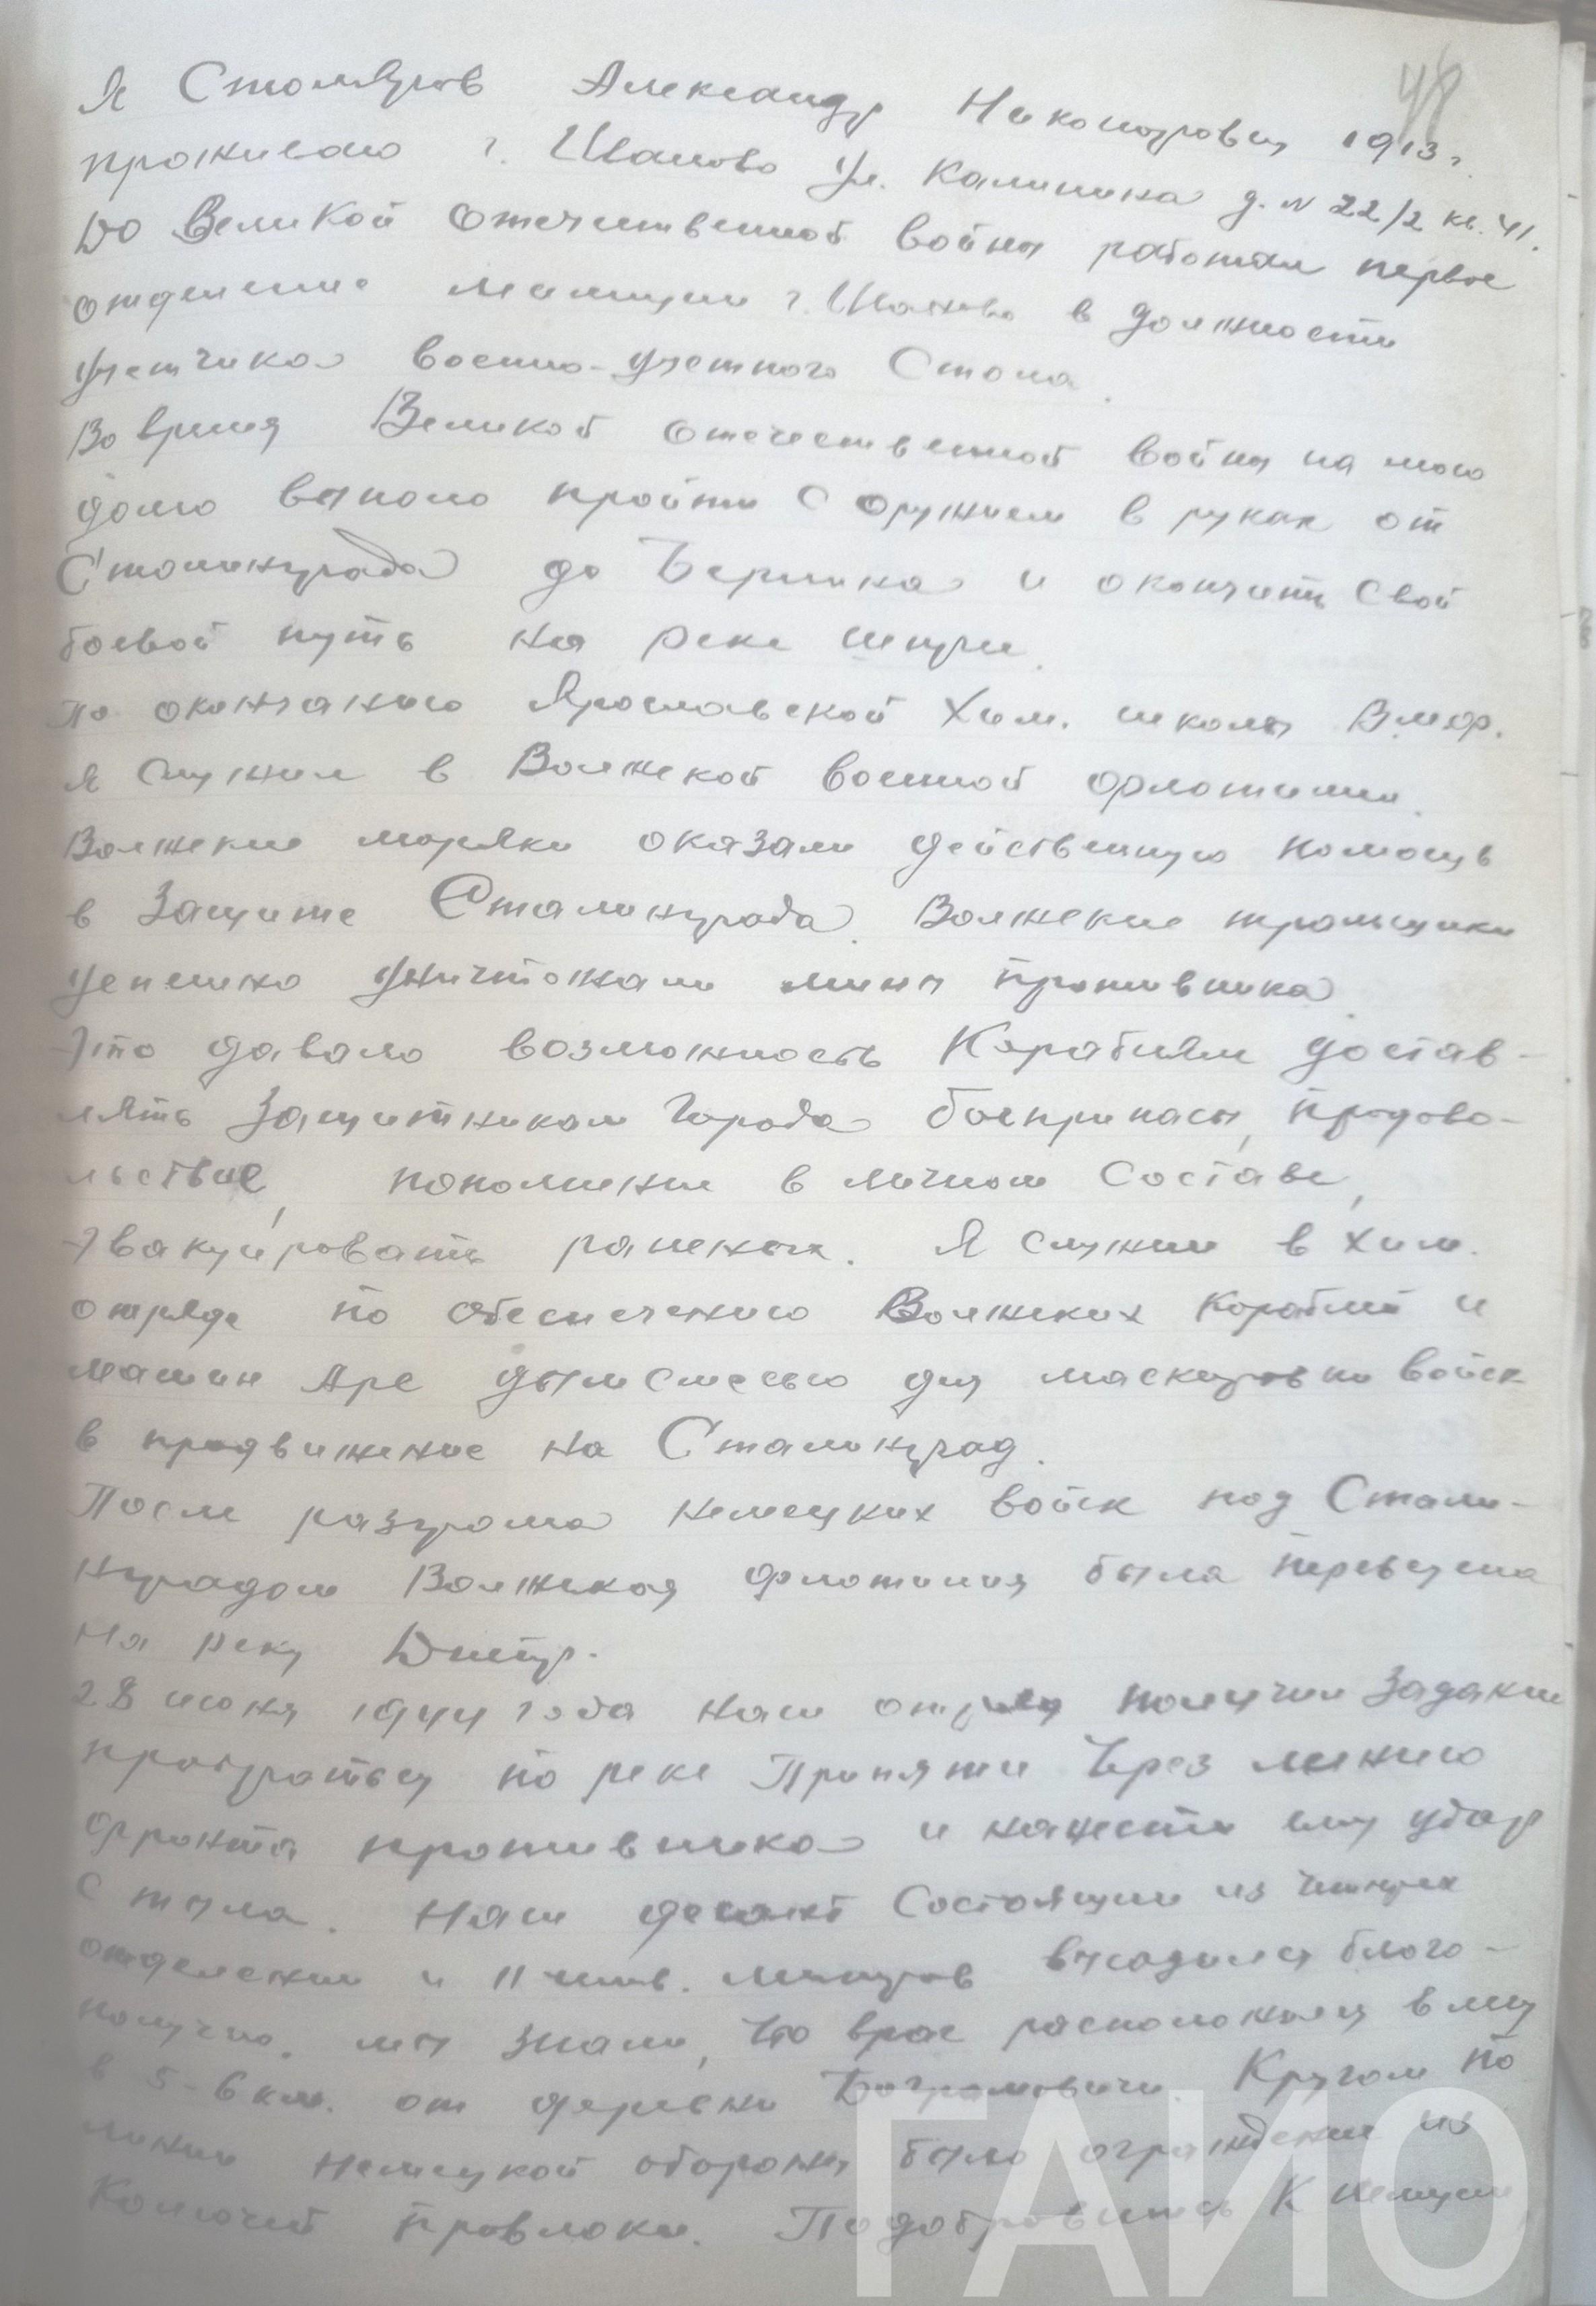 48
Я Столяров Александр Никонорович 1913 г.
проживаю г. Иваново ул. Калинина д. № 22/2 кв. 41.
До Великой отечественной войны работал первое
отделение милиции г. Иваново в должности
учетчика военно-учетного стола.
Во время Великой отечественной войны на мою
долю выпало пройти с оружием в руках от
Сталинграда до Берлина и окончить свой
боевой путь на реке Шпрее.
По окончанию Ярославской Хим. школы ВМФ.
я служил в Волжской военной флотилии.
Волжские моряки оказали действенную помощь
в защите Сталинграда. Волжские тральщики
успешно уничтожали мины противника.
Это давало возможность Кораблям достав-
лять защитникам города боеприпасы, продово-
льствие, пополнение в личном составе,
эвакуировать раненых. Я служил в хим.
отряде по обеспечению Волжских кораблей и
машин Арс дымсмесью для маскировки войск
в продвижение на Сталинград.
После разгрома немецких войск под Стали-
нградом Волжская флотилия была переведена
на реку Днепр.
28 июня 1944 года наш отряд получил задание
пробраться по реке Припяти через линию
фронта противника и нанести ему удар
с тыла. Наш десант состоящий из четырех
отделений и 11 чел. высадился благо-
получно. мы знали, что враг расположился в лесу
в 5-6 км. от деревни Кругом по
линии немецкой обороны было ограждение из
Колючей проволоки. Подобравшись К немцам
ГАИО